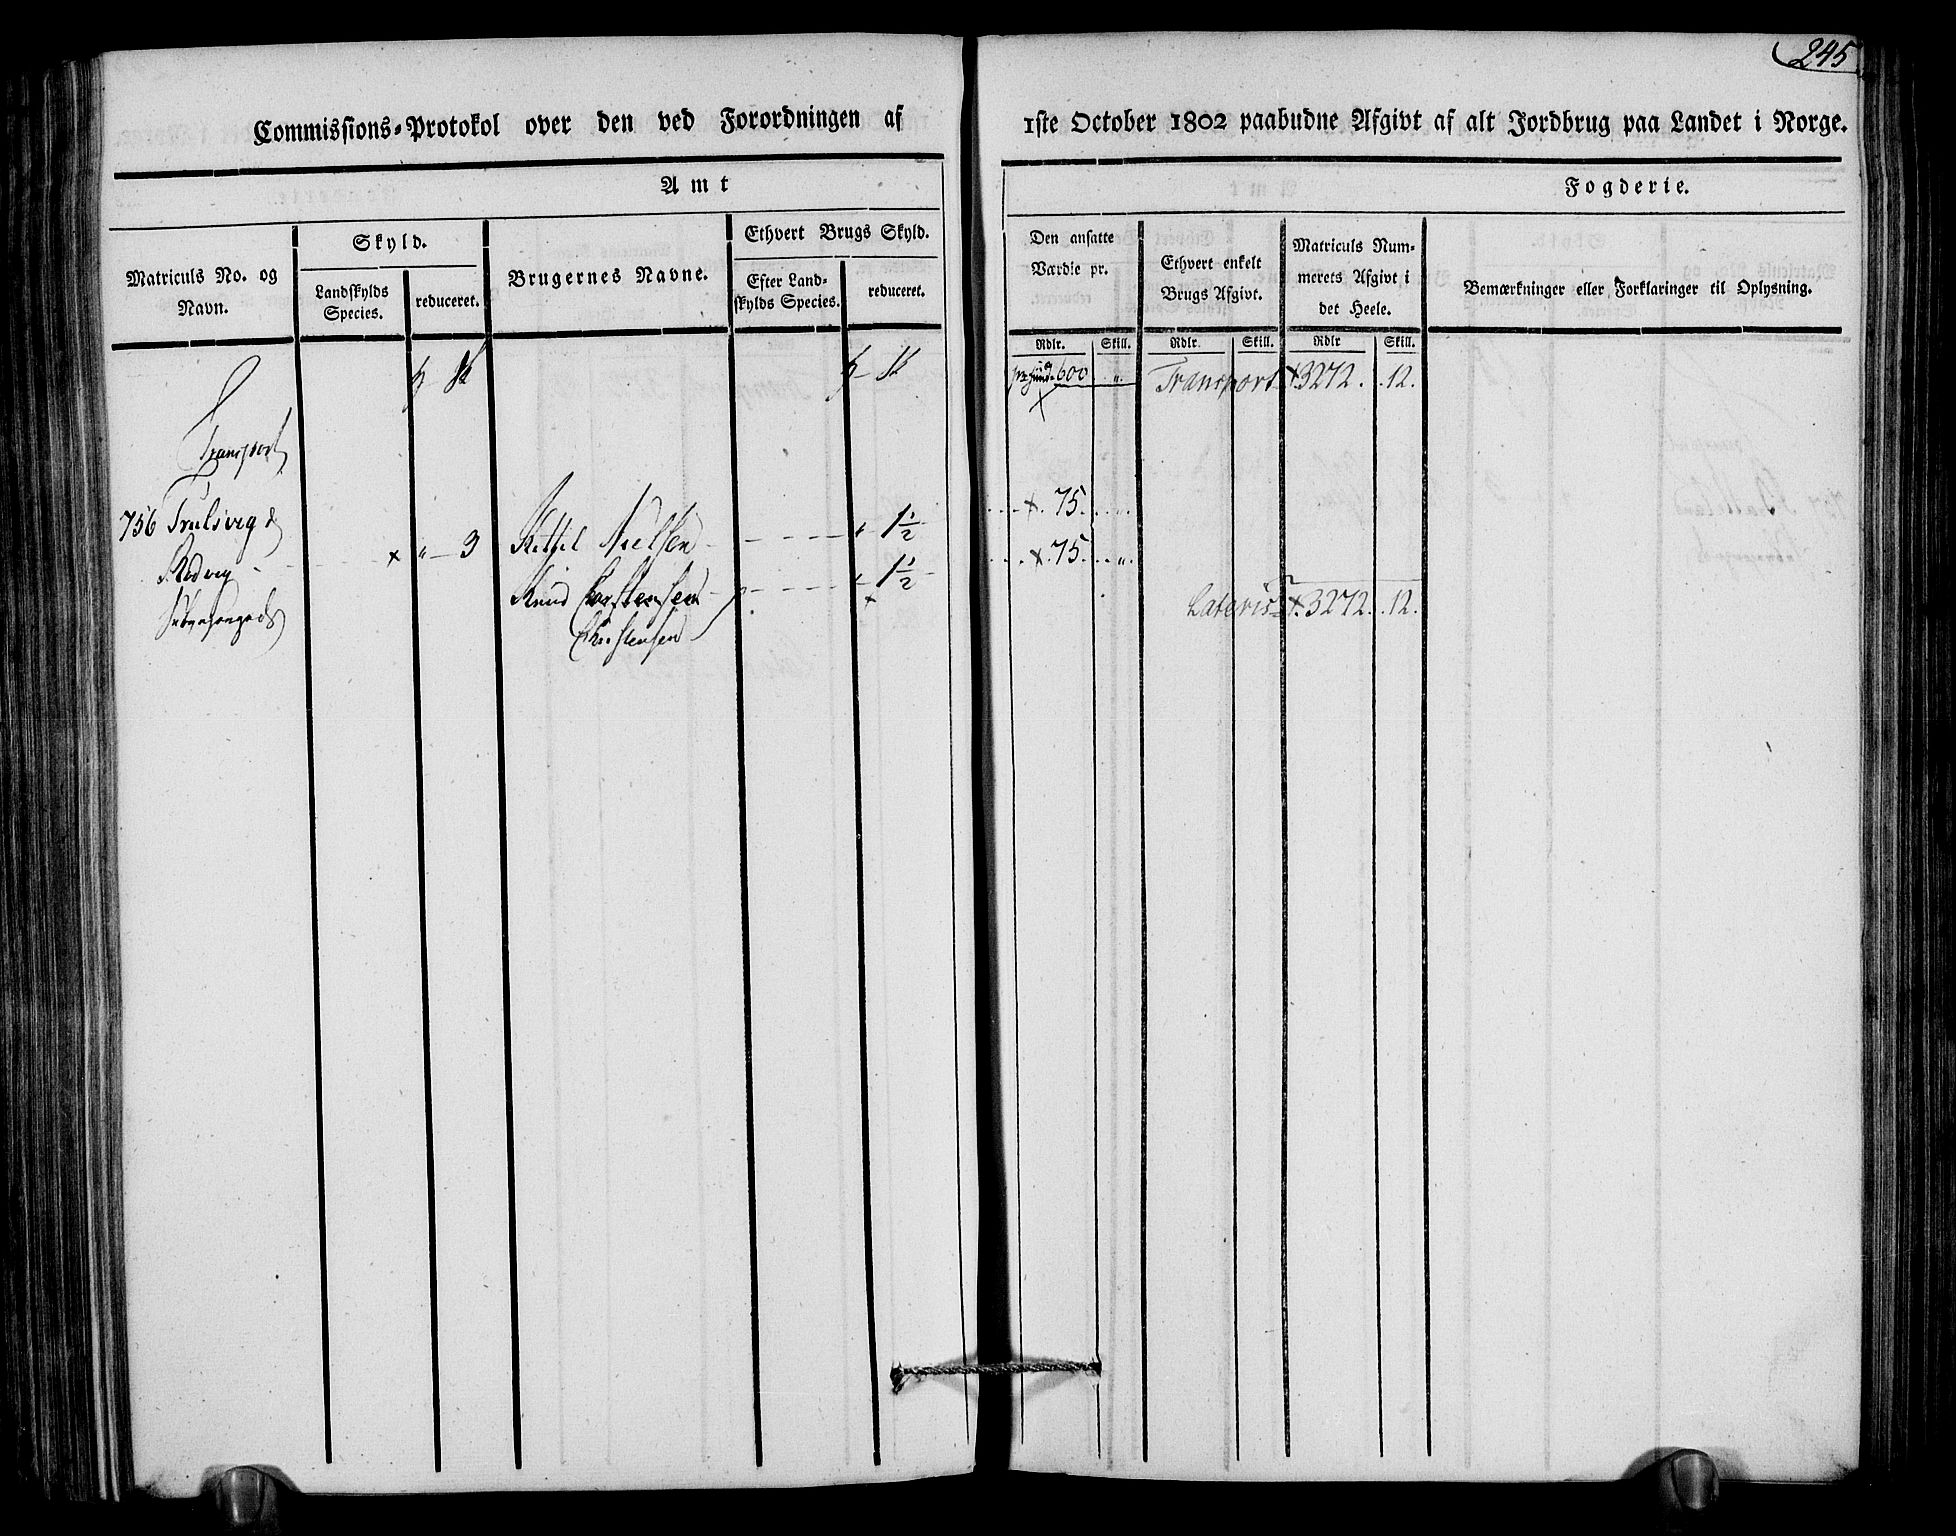 245
Commissions-Protokol over den ved Forordningen af 1ste October 1802 paabudne Afgivt af alt Jordbrug paa Landet i Norge.
Amt
Fogderie.
Matriculs No. og Navn.
Skyld.
Landskylds Species.
reduceret.
Brugernes Navne.
Ethvert Brugs Skyld.
Efter Land-
skylds Species.
reduceret.
Den ansatte Værdie pr.
Ethvert enkelt Brugs Afgivt.
Matriculs Num-
merets Afgivt i
det Heele.
Bemærkninger eller Forklaringer til Oplysning.
Rdlr. Skill. Rdlr. Skill. Rdlr Skill.
600 „ Transport 3272. .12.
Transport
756 Trulsvig &
„ 3 Kittil Nielsen „ 1½ 75. „
Knud Carstensen „ 1½ 75. „
Christensen
Lateris 3272. .12.